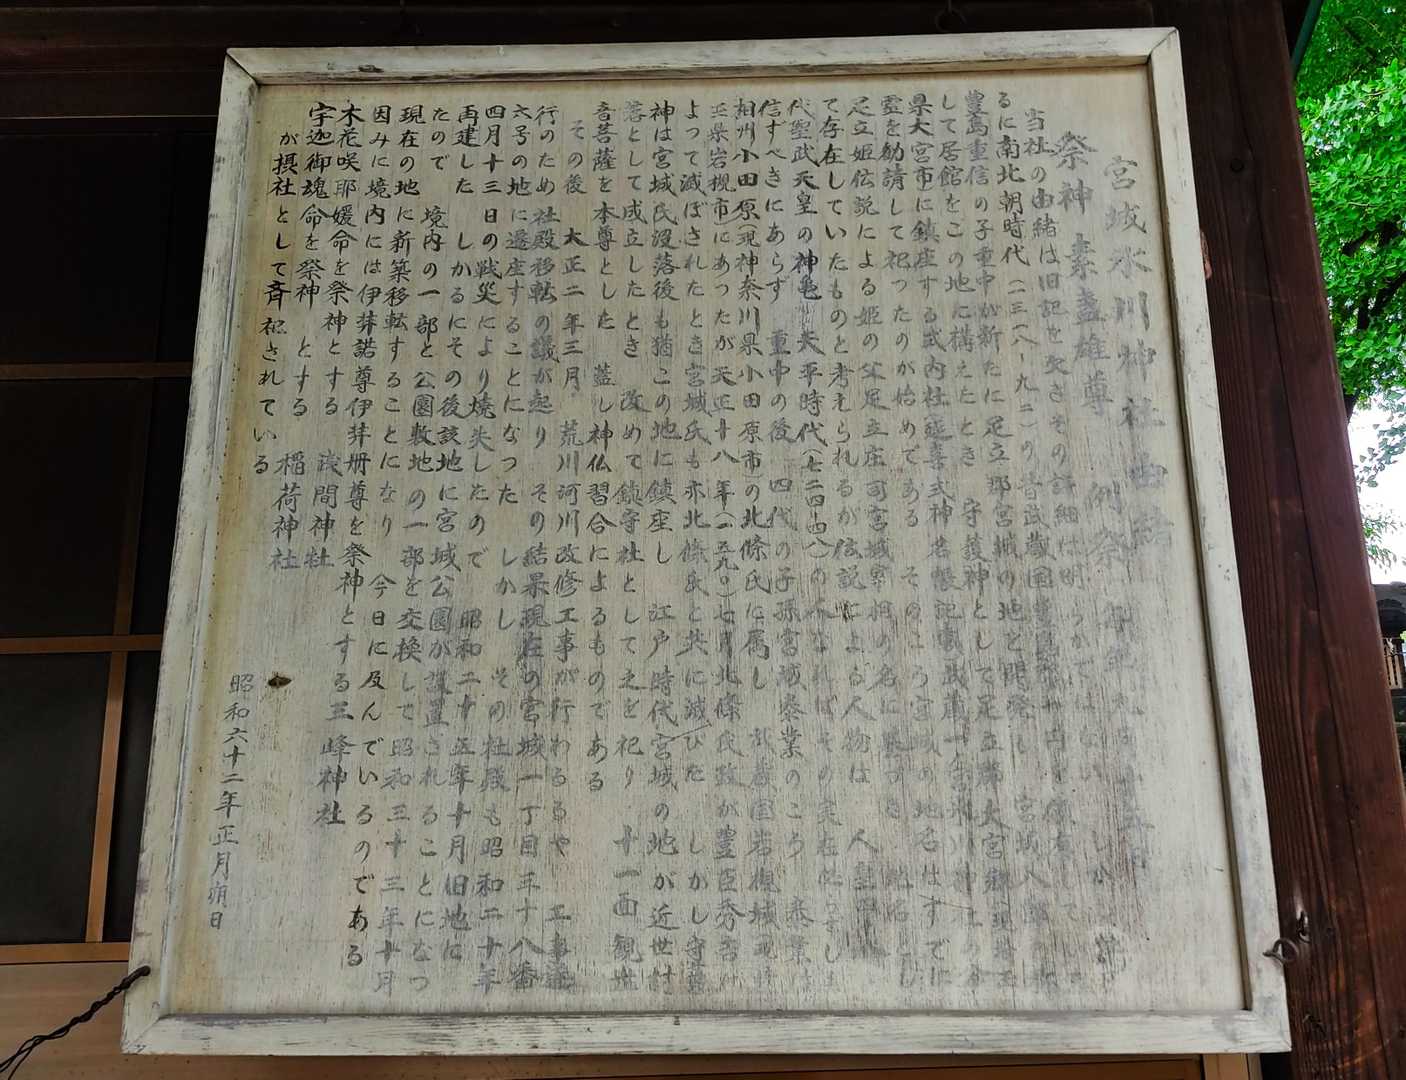 宮城氷川神社由緒
祭神 素盞雄尊 例祭
当社の由緒は旧記を欠きその詳細は明らかではない しか
るに南北朝時代(一三三八ー九二)の昔武蔵国豊島
豊島重信の子重中が新たに足立郡宮城の地を開発し 宮城八郎
して居館をこの地に構えたとき 守護神として足立郡大宮郷(現埼玉
県大宮市)に鎮座する式内社(延喜式神名帳記載)武蔵一宮氷川神社の分
霊を勧請して祀ったのが始めである そのころ宮城の地名はすでに
足立姫伝説による姫の父足立庄司宮城宰相の名に
て存在していたものと考えられるが伝説による人物は 人皇
代聖武天皇の神亀 天平時代(七二四ー四八)の人なればその実在
信ずべきにあらず 重中の後 四代の子孫宮城泰業のころ 泰業は
相州小田原(現神奈川県小田原市)の北條氏に属し 武蔵国岩槻城(現埼
玉県岩槻市)にあったが天正十八年(一五九〇)七月北條氏政が豊臣秀吉に
よって滅ぼされたとき宮城氏も亦北條氏と共に滅びた しかし守護
神は宮城氏没落後も猶この地に鎮座し 江戸時代宮城の地が近世村
落として成立したとき 改めて鎮守社として之を祀り 十一面観世
音菩薩を本尊とした 蓋し神仏習合によるものである
その後 大正二年三月 荒川河川改修工事が行わるるや 工事
行のため 社殿移転の議が起り その結果現在の宮城一丁目三十八番
六号の地に遷座することになった しかし その社殿も昭和二十年
四月十三日の戦災により焼失したので 昭和二十五年十月旧地に
再建した しかるにその後該地に宮城公園が設置されることになつ
たので 境内の一部と公園敷地の一部を交換して昭和三十三年十月
現在の地に新築移転することになり 今日に及んでいるのである
因みに境内には伊弉諾尊伊弉冊尊を祭神とする三峰神社
木花咲耶媛命を祭神とする 浅間神社
宇迦御魂命を祭神 とする 稲荷神社
が摂社として斉祀されている
昭和六十二年正月朔日